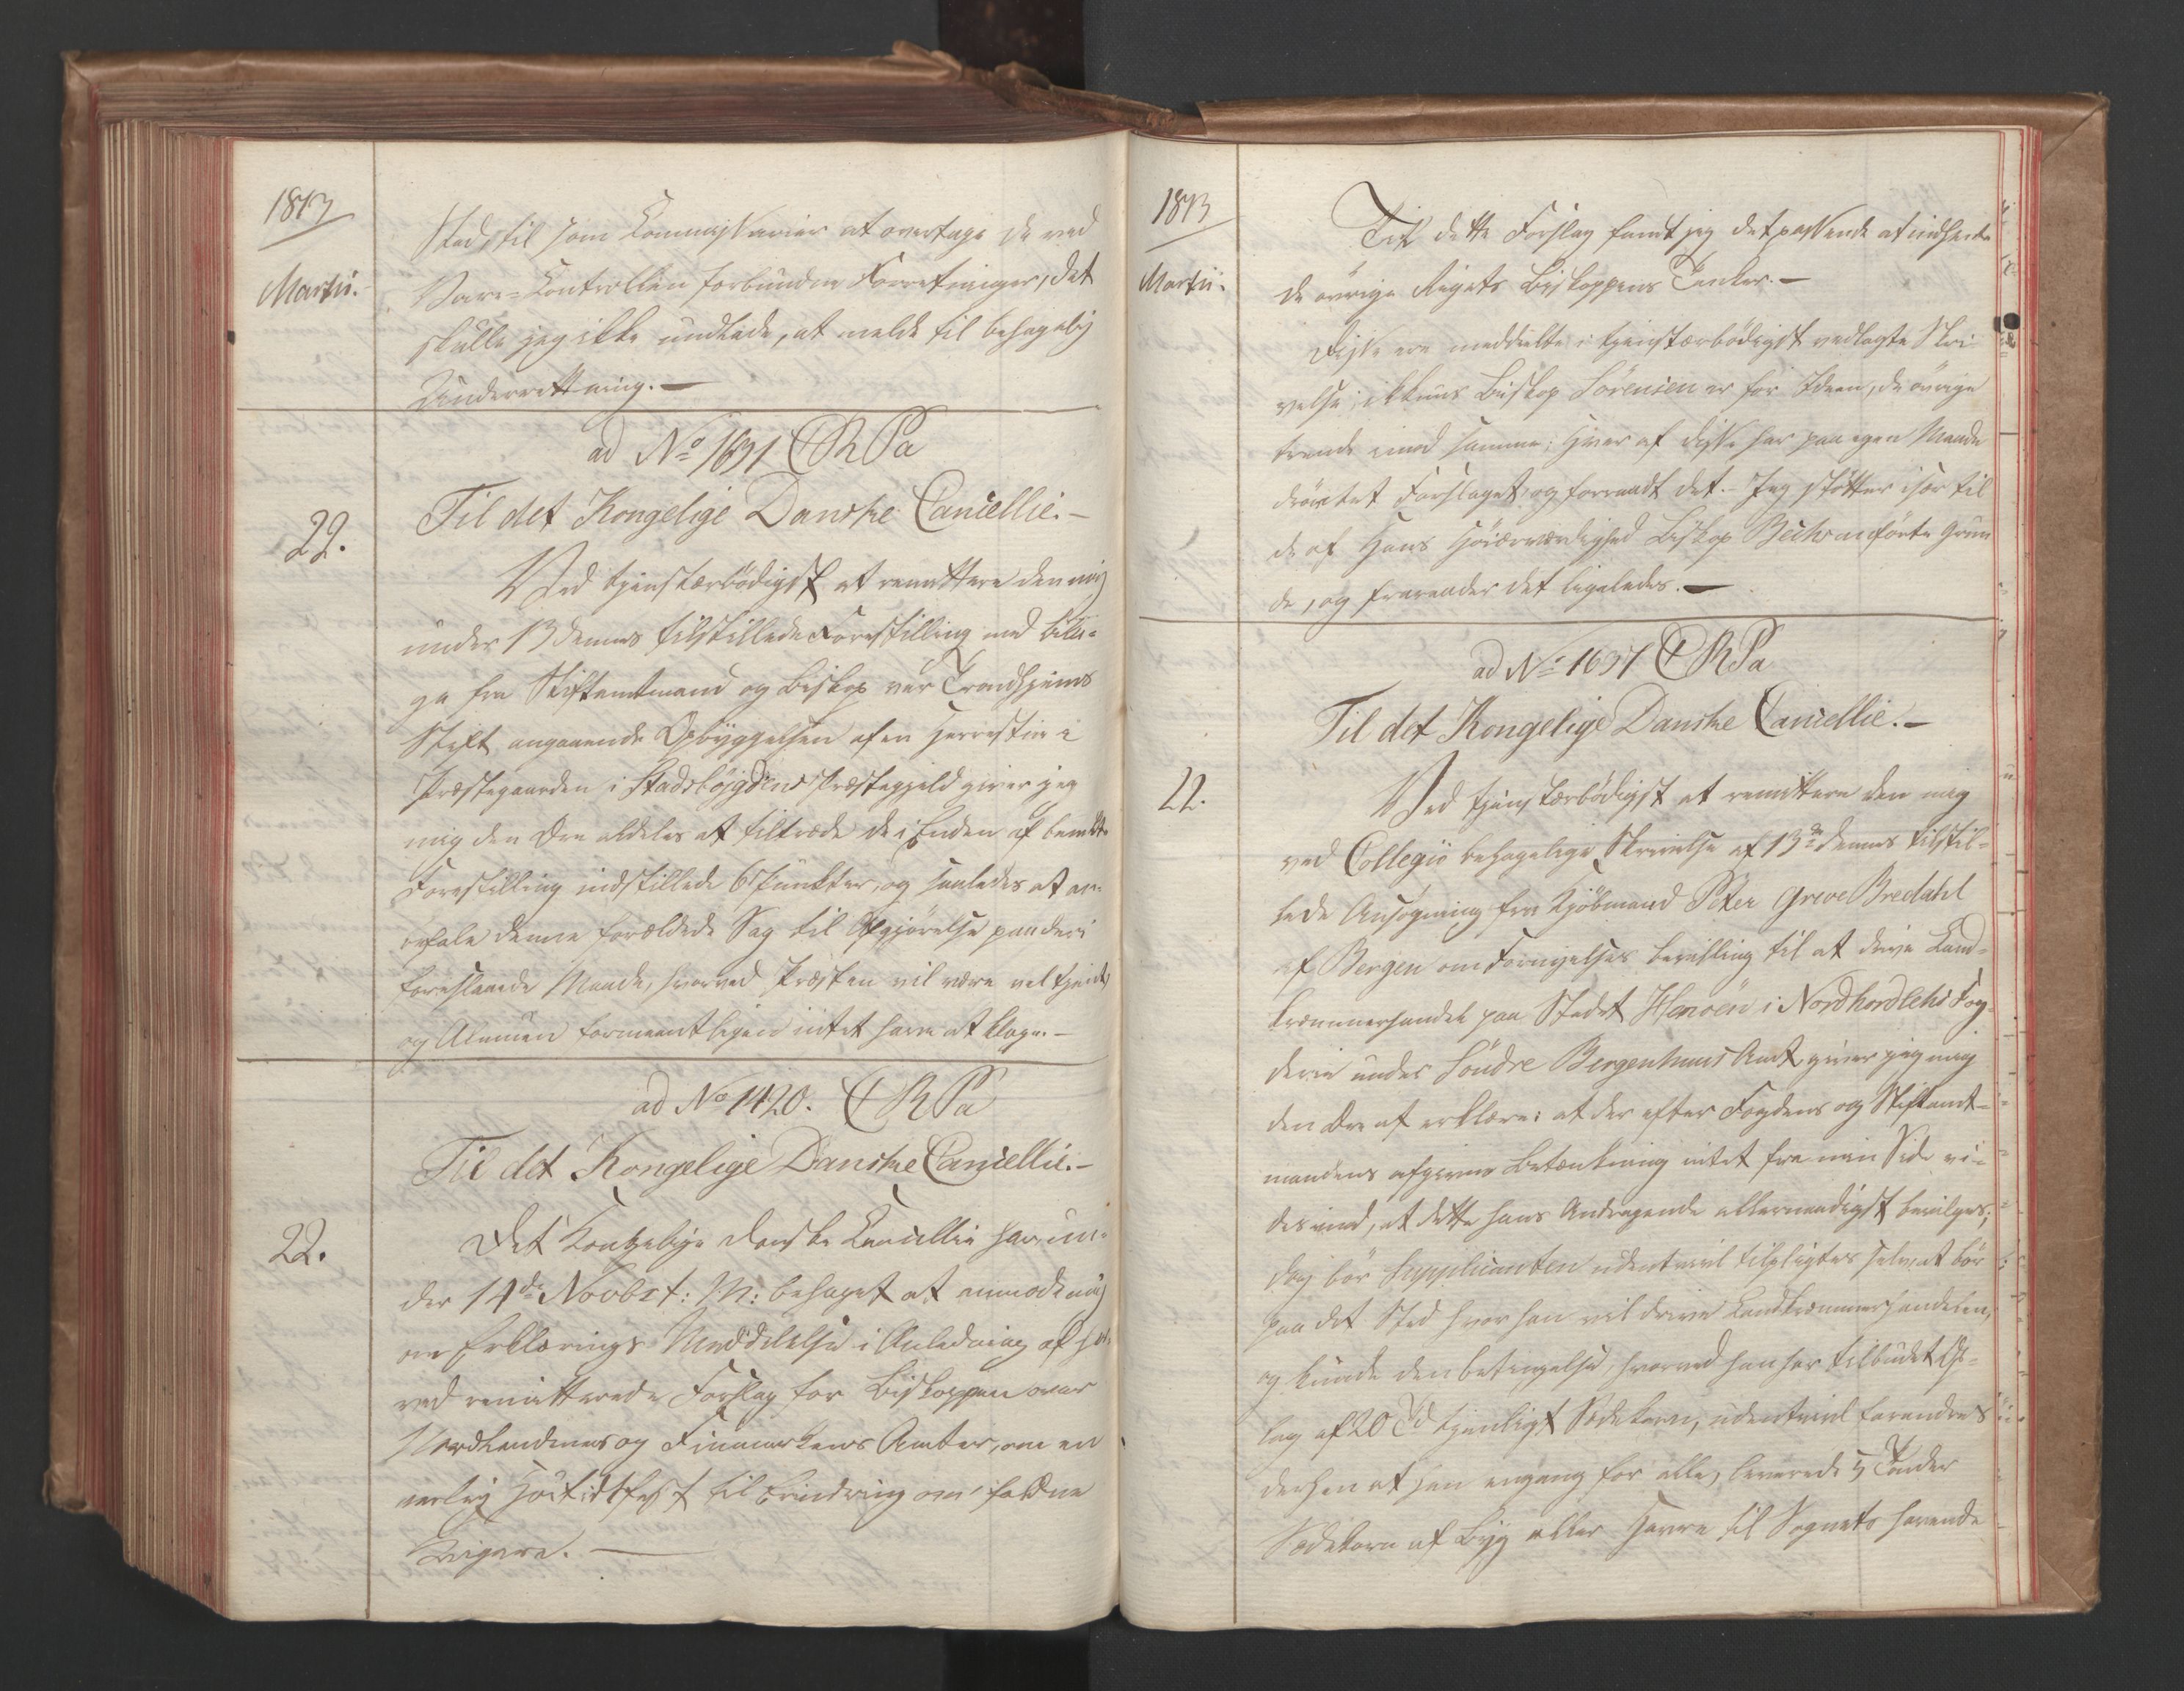 1813
Martii.
Stads til som Commissarier at overtage de ved
Vare-Controllen forbundne Forretninger, det
skulle jeg ikke undlade, at melde til behagelig
Underretning. —
ad No 1631 CRPa
Til det Kongelige Danske Cancellie. —
22.
Ved tjenstærbödigst at remittere den mig
under 13 dennes tilstillede Forestilling med Bila-
ge fra Stiftamtmand og Biskop over Trondhjems
Stift angaaende Opbyggelsen af en i
Præstegaarden i Stadsböjgdens Præstegjeld giver jeg
mig den Ære aldeles at tiltræde de i Enden af bemeldte
Forestilling indstillede 6 Punkter, og saaledes at an-
befale denne forældede Sag til Afgjörelse paa den i
foreslaaede Maade, hvorved Præsten vil være vel tjent,
og Almuen formeentligen intet have at klage. —
ad No 1420. CRPa
Til det Kongelige Danske Cancellie. —
22.
Det Kongelige Danske Cancellie har un-
der 14de Novbr f: A: behaget at anmode mig
om Erklærings Meddelelse i Anledning af her-
ved remitterede Forslag fra Biskoppen over
Nordlandenes og Finmarkens Amter, om en
aarlig Höitidsfest til Erindring om faldne
Krigere. —
1813
Martii.
Til dette Forslag fandt jeg det passende at indhente
de övrige Rigets Biskoppers Tanker. —
Disse ere meddeelte i tjenstærbödigst vedlagte Skri-
velse; ikkuns Biskop Sörensen er for Ideen, de övrige
trende imod samme; hver af disse har paa egen Maade
dröftet Forslaget og forraadt det. — Jeg stötter især til
de af Hans Höiærværdighed Biskop Bech anförte Grun
de, og fraraader det ligeledes. —
ad No 1631 CRPa
Til det Kongelige Danske Cancellie. —
22.
Ved tjenstærbödigst at remittere den mig
ved Collegii behagelige Skrivelse af 13de dennes tilstil-
lede Ansögning fra Kjöbmand Peter Greve Bredahl
af Bergen om Fornyelses Bevilling til at drive Land-
kræmmerhandel paa Stedet Hernöen i Nordhordlehns Fog-
derie under Söndre Bergenhuus Amt, giver jeg mig
den Ære at erklære: at der efter Fogdens og Stiftamt-
mandens afgivne Betænkning intet fra min Side vi-
des imod, at dette hans Andragende allernaadigst bevilges;
dog bör Supplicanten udentvivl tilpligtes selv at boe
paa det Sted hvor han vil drive Landkræmmerhandelen,
og kunde den betingelse, hvorved han har tilbudet Op-
lag af 20 Td tjenligt Sædekorn, udentvivl forandres
derhen at han engang for alle, leverede 5 Tønder
Sædekorn af Byg eller Havre til Sognets havende